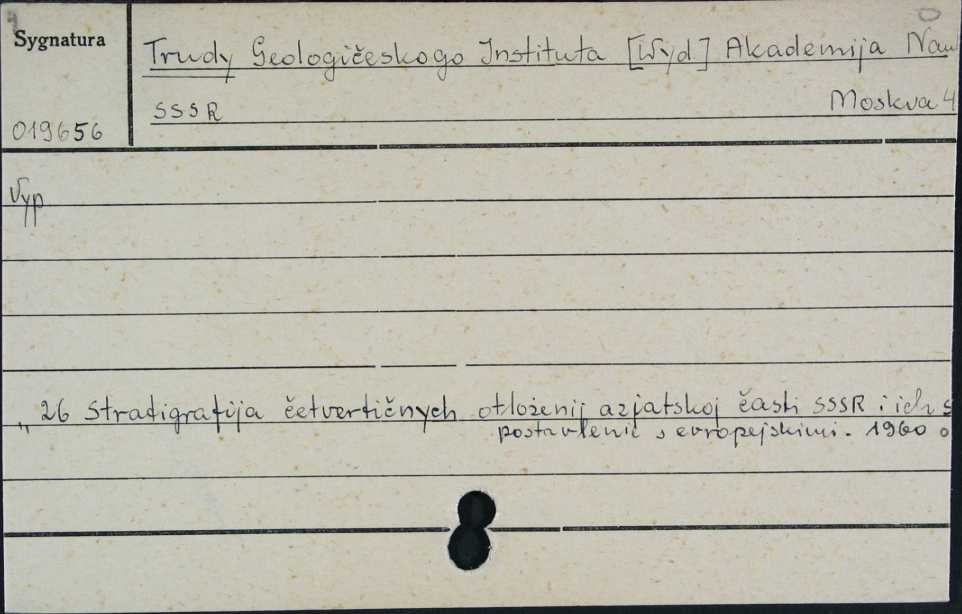 Sygnatura
Trudy Geologičeskogo Instituta [Wyd] Akademija Nau
SSSR Moskva 4
019656
Vyp
„ 26 Stratigrafija četvertičnych otłoženij azjatskoj časti SSSR i ich s
postavlenie s evropejskimi. 1960 o